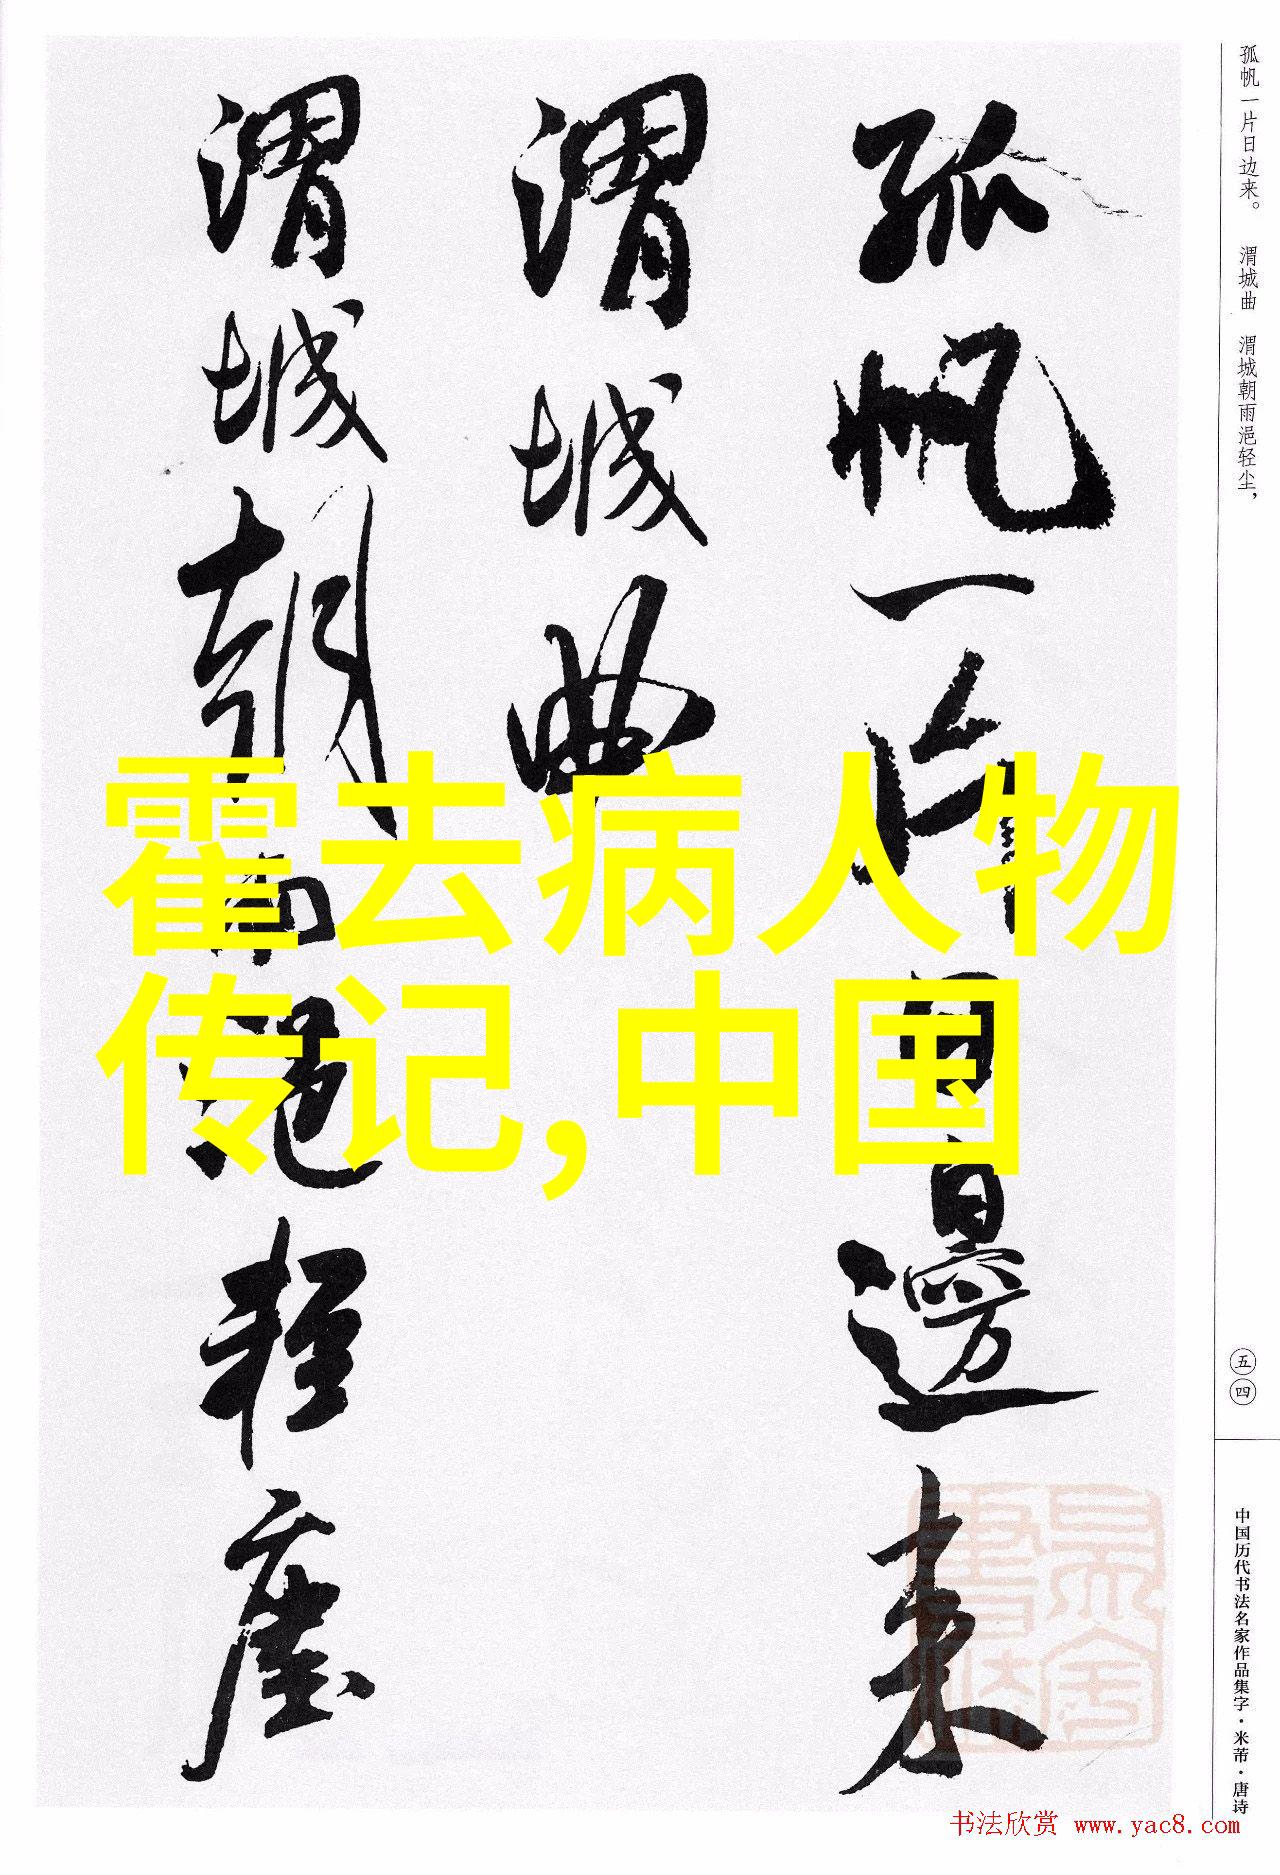 孤帆一片日边来。 渭城曲 渭城朝雨浥轻尘，
孤帆一片日邊来
渭城曲
渭城朝雨浥轻塵
霍去病人物
传记,中国
五四
中国历代书法名家作品集字·米芾·唐诗
书法欣赏 www.yac8.com